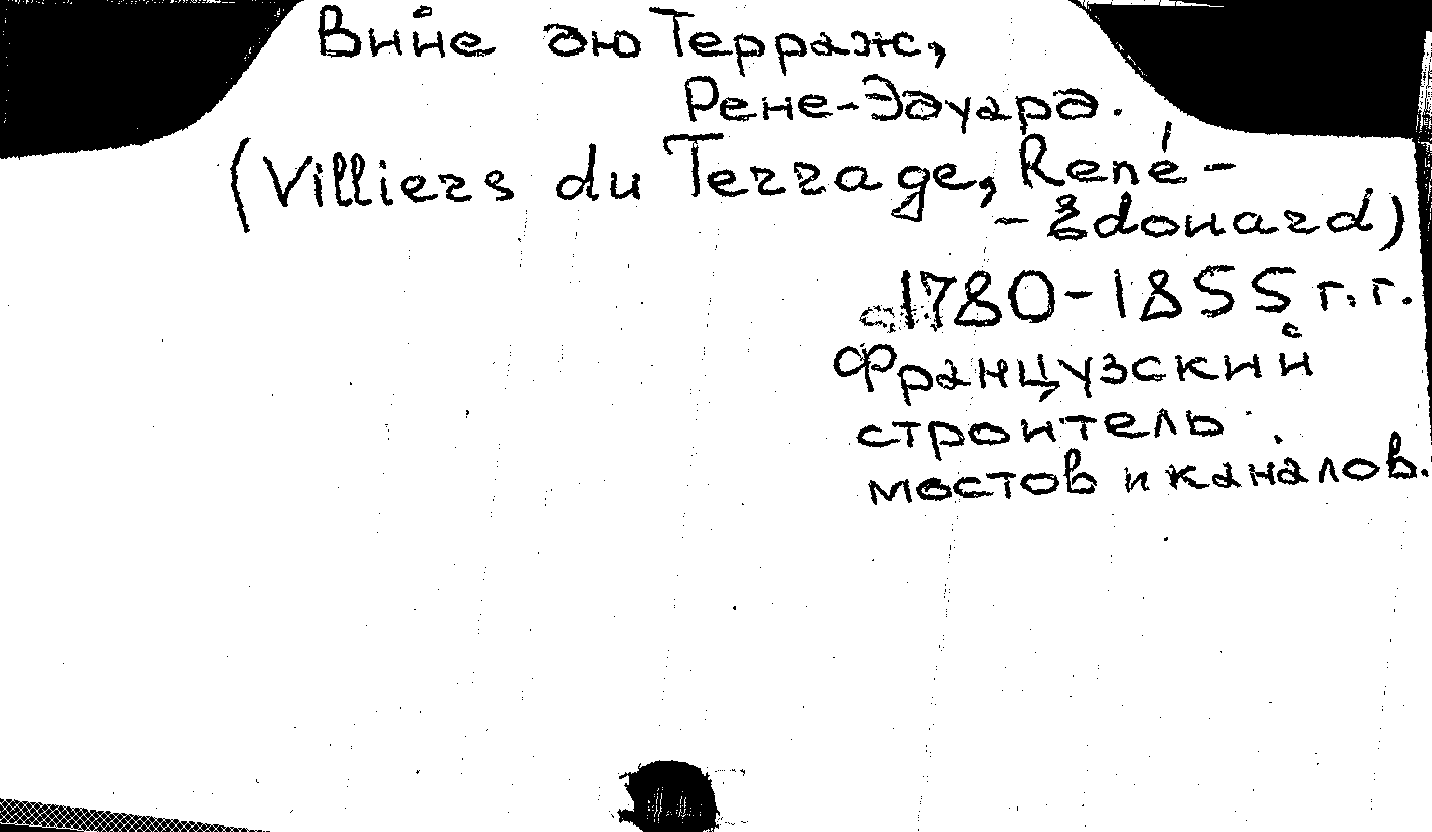 Вийе дю Терраж,
Рене-Эдуард.
(Villiers du Terrage, René-
-Edouard)
1780-1855 г.г.
Французский
строитель
мостов и каналов.